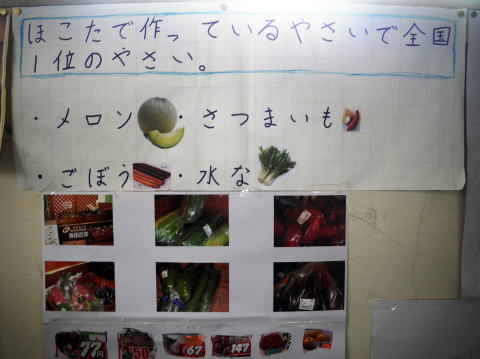 ほこたで作っているやさいで全国
1位のやさい。
・メロン ・さつまいも
・ごぼう ・水な
77円 50 67 147